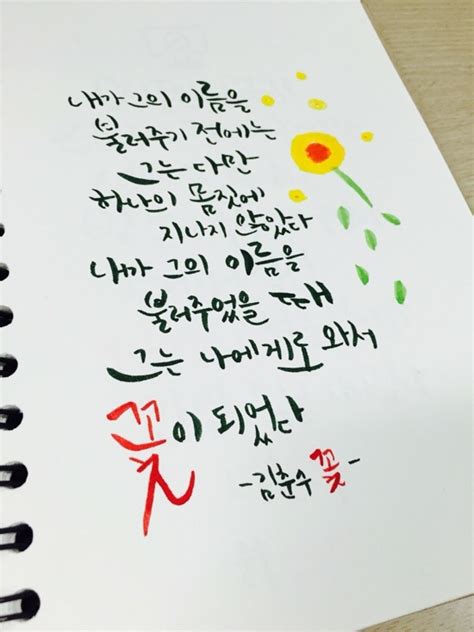 내가 그의 이름을
불러주기 전에는
그는 다만
하나의 몸짓에
지나지 않았다
내가 그의 이름을
불러주었을 때
그는 나에게로 와서
꽃이 되었다
-김춘수 꽃-